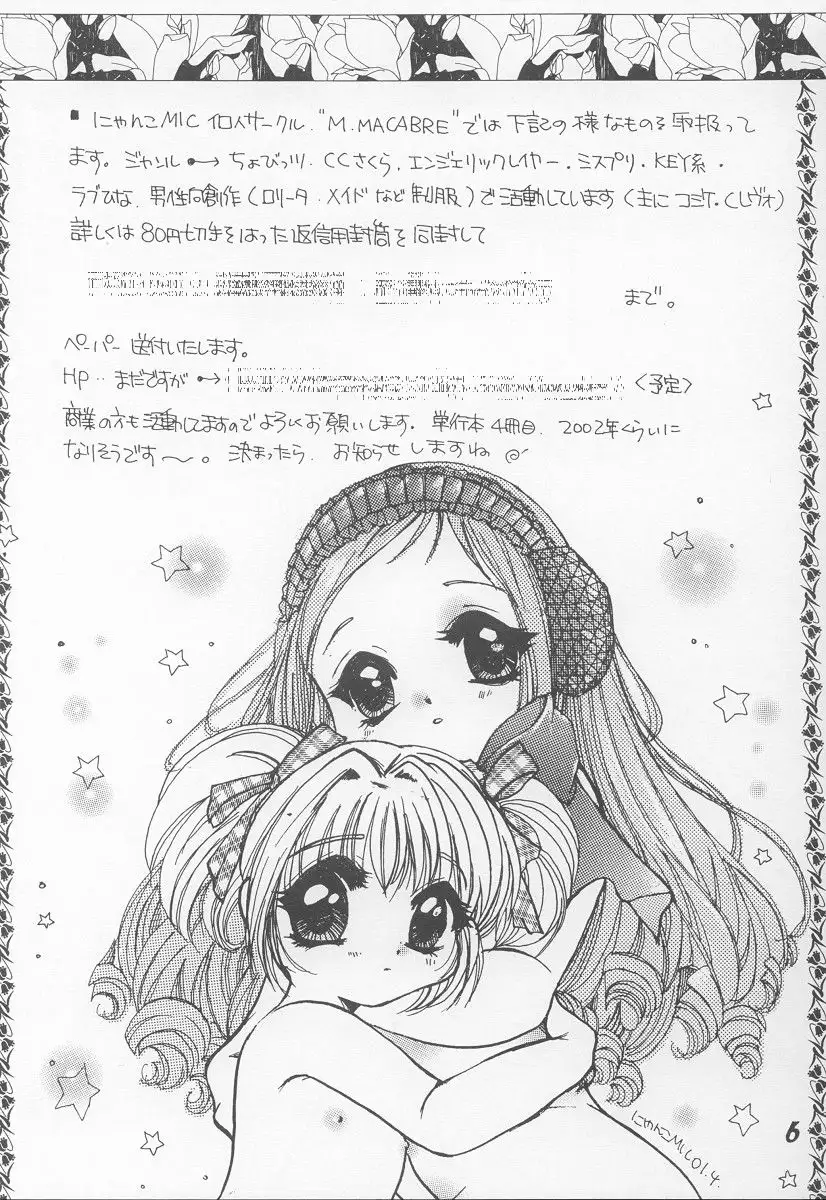 にゃんこMIC 個人サークル. "M.MACABRE"では下記の様なものを取扱って
ます。ジャンル ちょびっツ. CCさくら. エンジェリックレイヤー. ミスプリ. KEY系.
ラブひな. 男性向創作(ロリータ.メイドなど制服)で活動しています(主にコミケ.C.レヴォ)
詳しくは80円切手をはった返信用封筒を同封して
まで。
ペーパー送付いたします。
HP‥まだですが 〈予定〉
商業の方も活動してますのでよろしくお願いします. 単行本4冊目. 2002年くらいに
なりそうです〜。決まったら. お知らせしますね
にゃんこMIC 01.4.
6